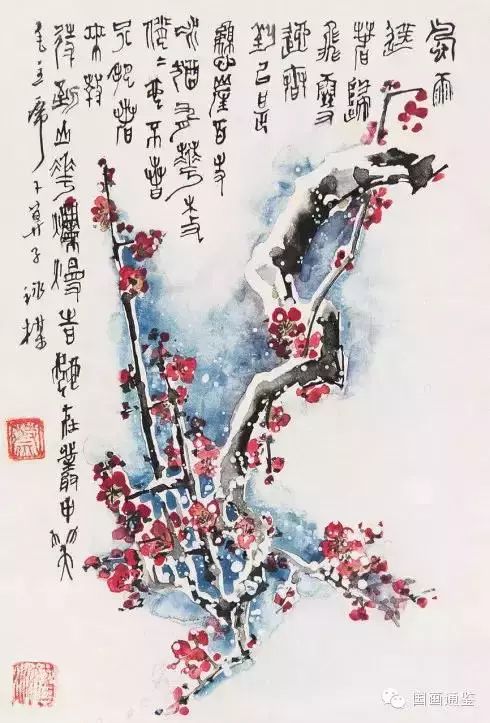 風雨
送
春歸
飛雪
迎春
到已是
懸崖百丈
冰猶有花枝
俏〻也不爭春
只把春
來報
待到山花爛熳時她在叢中笑
毛主席卜算子詠梅
国画通鉴